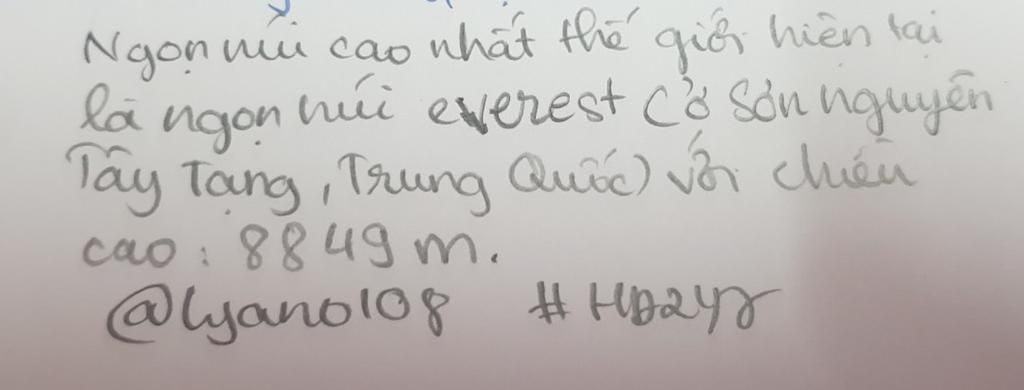 Ngọn núi cao nhất thế giới hiện tại
là ngọn núi everest (ở Sơn nguyên
Tây Tạng, Trung Quốc) với chiều
cao : 8849 m.
@lyano108 #HD2Y2